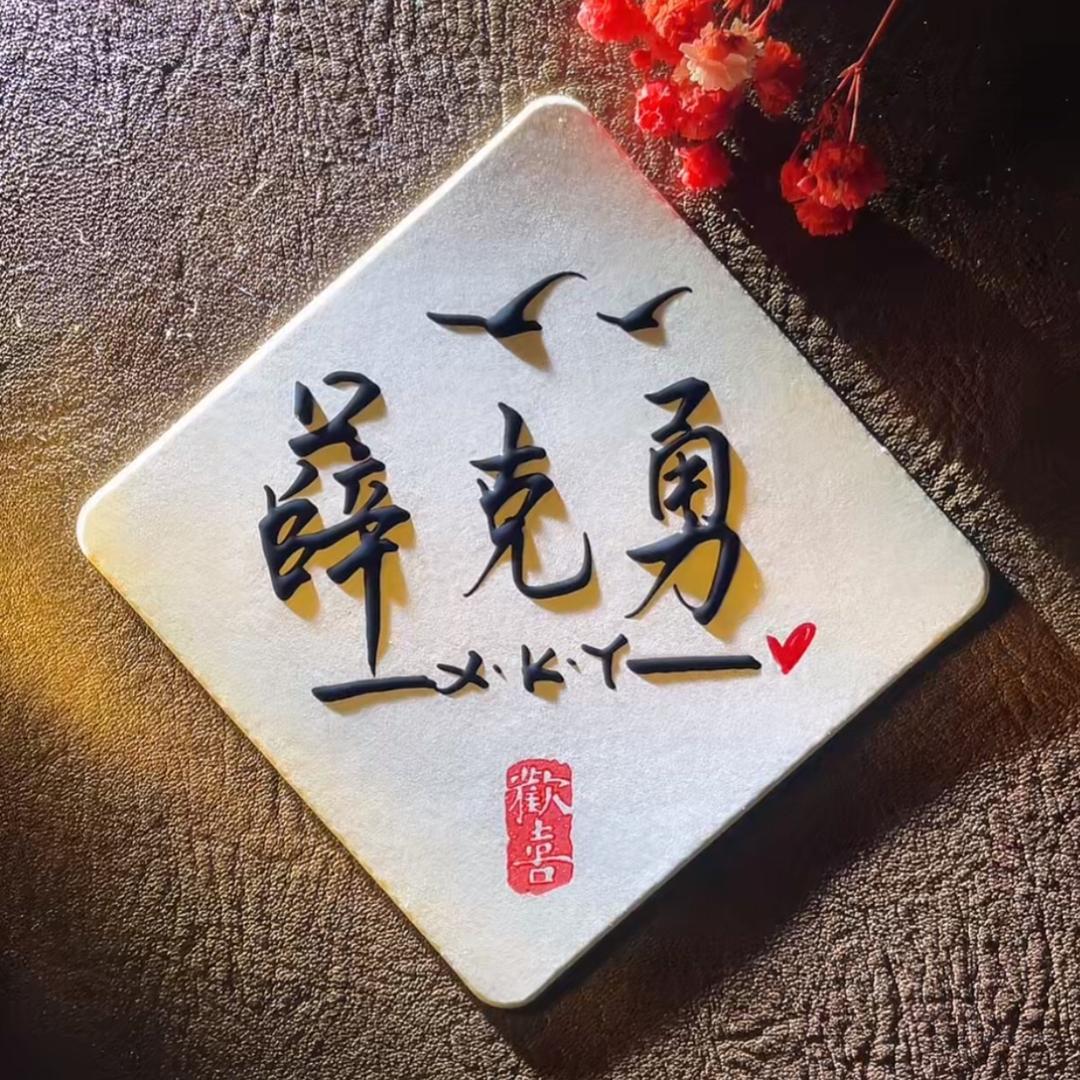 薛克勇
X·K·Y
歡喜